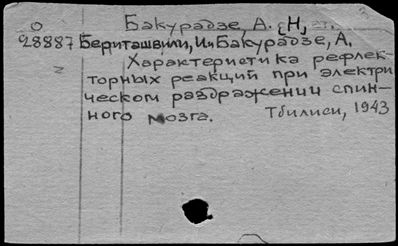 О Бакурадзе, А. {Н,
28887 Бериташвили, И. и Бакурадзе, А.
2 Характеристика рефлек-
торных реакций при электри
ческом раздражении спин-
ного мозга. Тбилиси, 1943